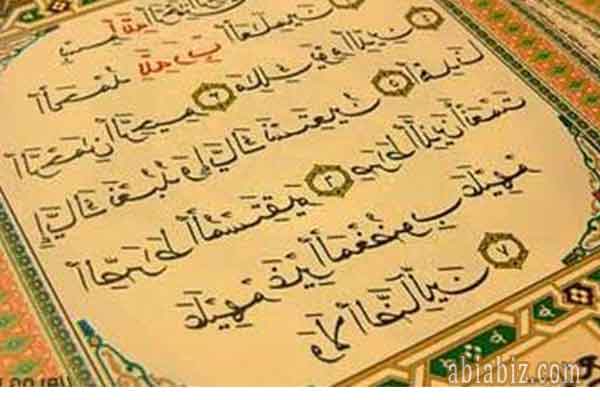 بسم الله الرحمن الرحيم
الحمد لله رب العلمين ٢
الرحمن الرحيم ٣ ملك يوم الدين ٤
إياك نعبد وإياك نستعين ٥ اهدنا
الصرط المستقيم ٦ صرط الذين أنعمت
عليهم غير المغضوب عليهم
ولا الضالين ٧
abiabiz.com